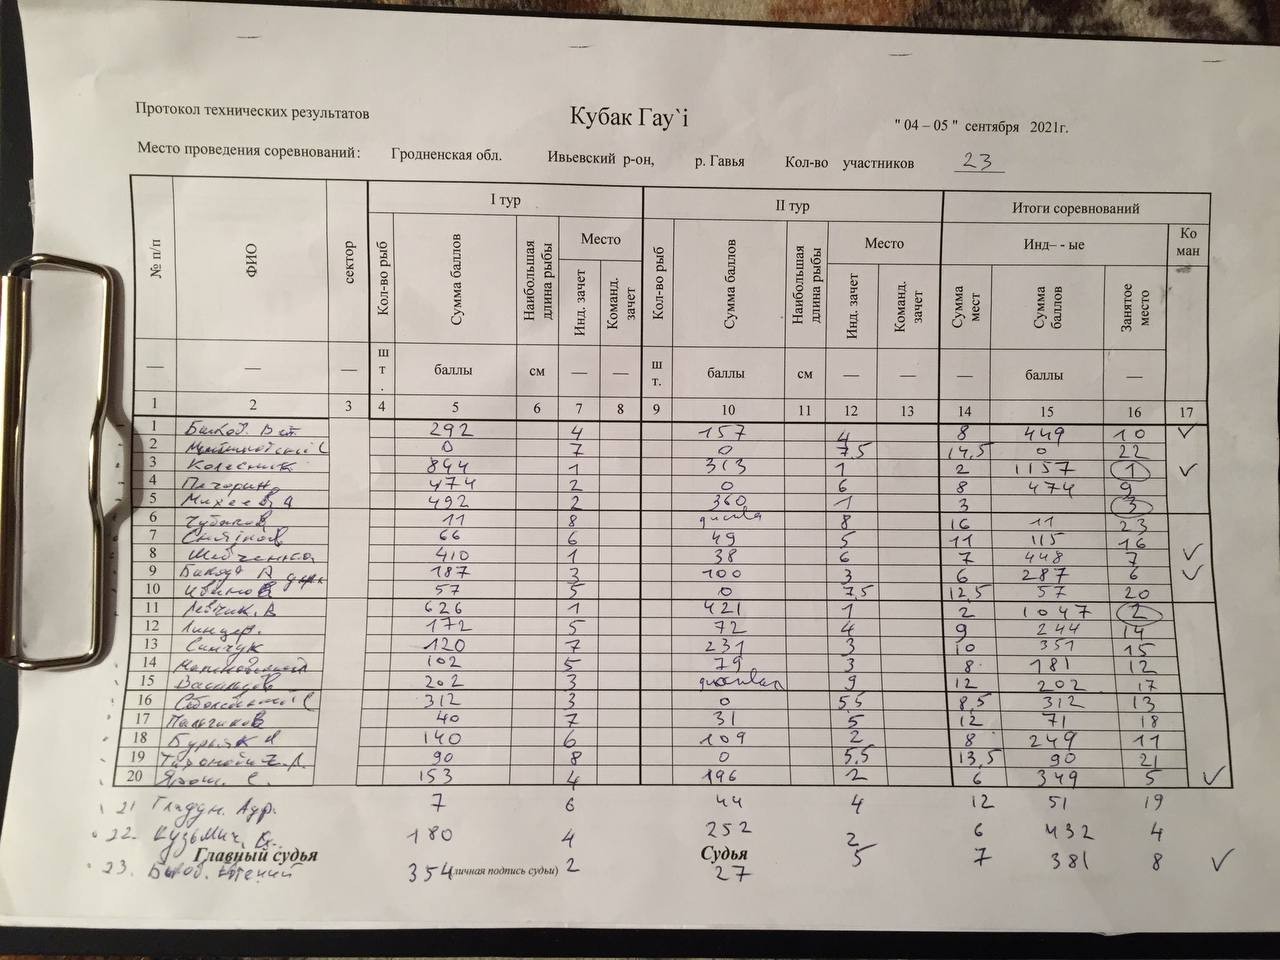 Протокол технических результатов
Кубак Гау`і
" 04 – 05 " сентября 2021г.
Место проведения соревнований: Гродненская обл. Ивьевский р-он, р. Гавья Кол-во участников 23
№ п/п ФИО сектор I тур II тур Итоги соревнований
Кол-во рыб Сумма баллов Наибольшая длина рыбы Место Кол-во рыб Сумма баллов Наибольшая длина рыбы Место Инд– - ые Ко ман
Инд. зачет Команд. зачет Инд. зачет Команд. зачет Сумма мест Сумма баллов Занятое место
— — — шт. баллы см — — шт. баллы см — — — баллы —
1 2 3 4 5 6 7 8 9 10 11 12 13 14 15 16 17
1 292 4 157 4 8 449 10 ✓
2 0 7 0 7,5 14,5 0 22
3 Колесник 844 1 313 1 2 1157 1 ✓
4 Печорин 474 2 0 6 8 474 9
5 Михеев 492 2 360 1 3 3
6 Чубаков 11 8 8 16 11 23
7 66 6 49 5 11 115 16
8 Шевченко 410 1 38 6 7 448 7 ✓
9 187 3 100 3 6 287 6 ✓
10 57 5 0 7,5 12,5 57 20
11 Левчик. А 626 1 421 1 2 1047 2
12 Линцер. 172 5 72 4 9 244 14
13 Синчук 120 7 231 3 10 351 15
14 102 5 79 3 8 181 12
15 202 3 9 12 202 17
16 312 3 0 5,5 8,5 312 13
17 40 7 31 5 12 71 18
18 Бурак 140 6 109 2 8 249 11
19 90 8 0 5,5 13,5 90 21
20 Ярош. С. 153 4 196 2 6 349 5 ✓
21 Гладун. Адр. 7 6 44 4 12 51 19
22. Кузьмич. 180 4 252 2 6 432 4
Главный судья Судья
23. 354 (личная подпись судьи) 2 27 5 7 381 8 ✓